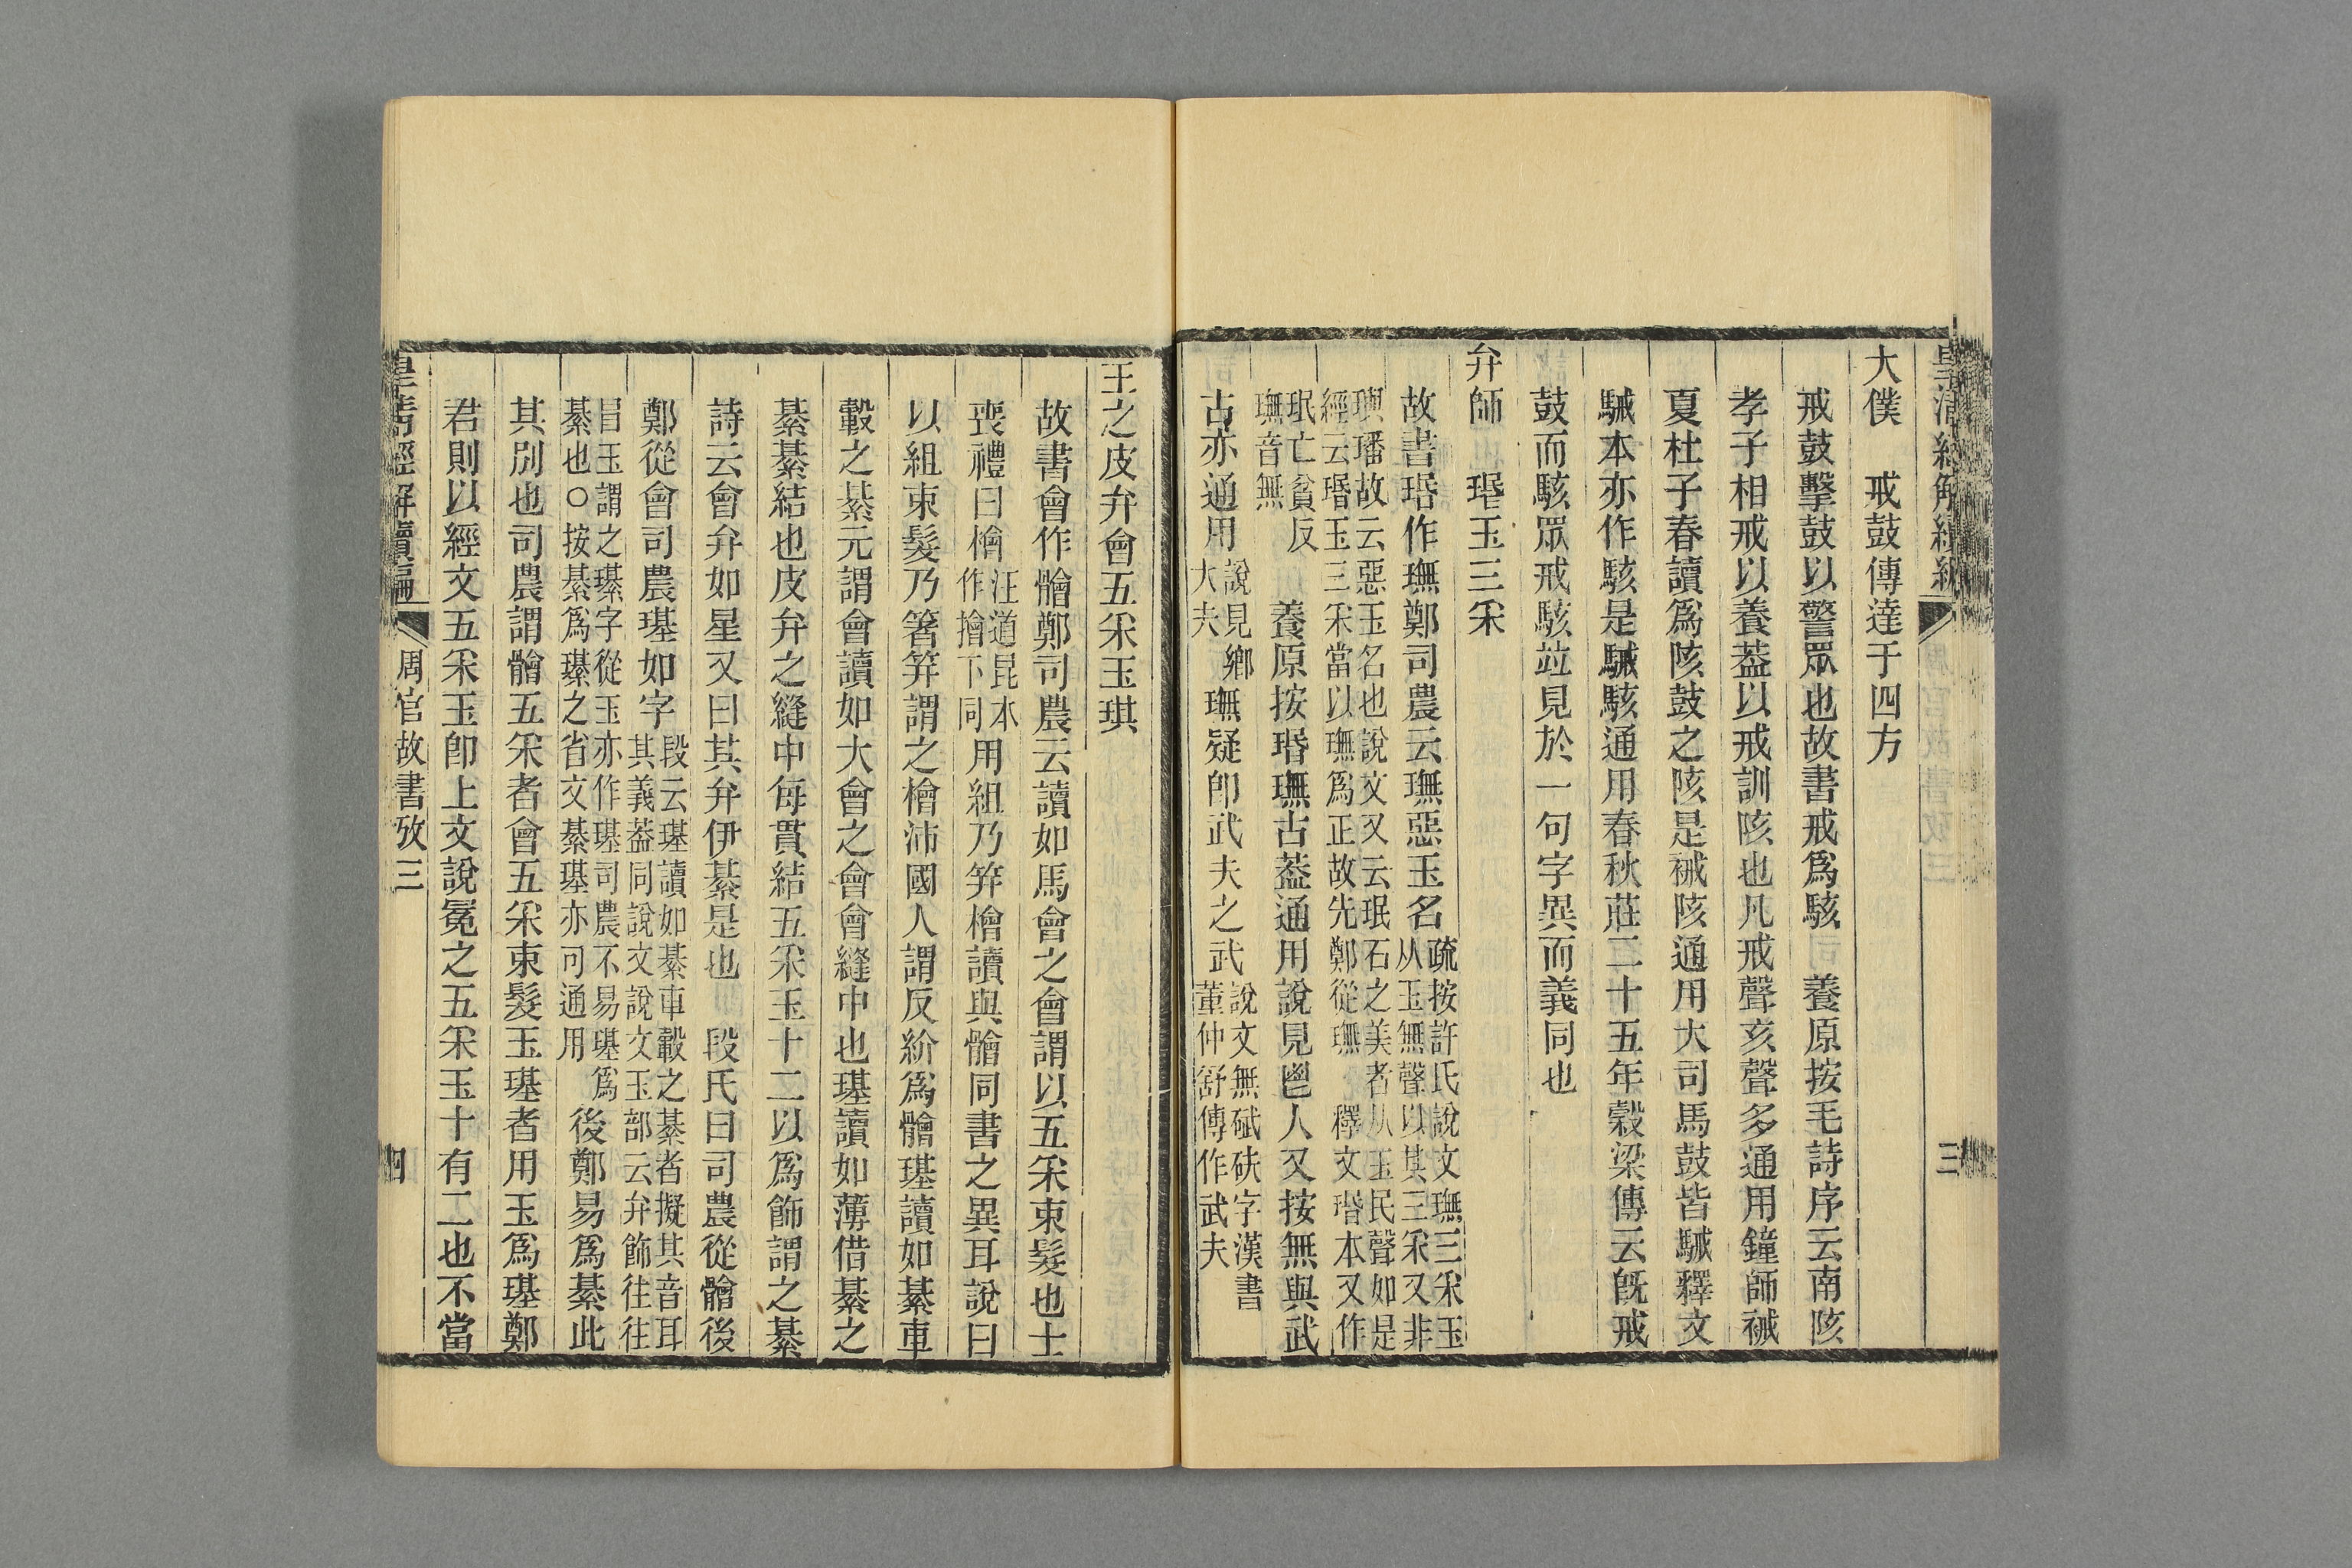 大僕　戒鼓傳達于四方
戒鼓擊鼓以警眾也故書戒爲駭　養原按毛詩序云南陔
孝子相戒以養葢以戒訓陔也凡戒聲亥聲多通用鐘師祴
夏杜子春讀爲陔鼓之陔是祴陔通用大司馬鼓皆駴釋文
駴本亦作駭是駴駭通用春秋莊二十五年穀梁傳云旣戒
鼓而駭眾戒駭竝見於一句字異而義同也
弁師　瑉玉三采
故書瑉作璑鄭司農云璑惡玉名疏按許氏說文璑三采玉从玉無聲以其三采又非
璵璠故云惡玉名也說文又云珉石之美者从玉民聲如是經云瑉玉三采當以璑爲正故先鄭從璑　釋文瑉本又作
珉亡貧反璑音無　養原按瑉璑古葢通用說見鬯人又按無與武
古亦通用說見鄉大夫璑疑卽武夫之武說文無碔砆字漢書董仲舒傳作武夫
王之皮弁會五采玉琪
故書會作䯤鄭司農云讀如馬會之會謂以五采束髮也士
喪禮曰檜汪道昆本作擔下同用組乃筓檜讀與䯤同書之異耳說曰
以組束髮乃箸筓謂之檜沛國人謂反紒爲䯤璂讀如綦車
轂之綦元謂會讀如大會之會會縫中也璂讀如薄借綦之
綦綦結也皮弁之縫中每貫結五采玉十二以爲飾謂之綦
詩云會弁如星又曰其弁伊綦是也　段氏曰司農從䯤後
鄭從會司農璂如字段云璂讀如綦車轂之綦者擬其音耳其義葢同說文說文玉部云弁飾往往
冒玉謂之瑧字從玉亦作璂司農不易璂爲綦也○按綦爲瑧之省文綦璂亦可通用後鄭易爲綦此
其別也司農謂䯤五采者會五采束髮玉璂者用玉爲璂鄭
君則以經文五采玉卽上文說冕之五采玉十有二也不當
皇清經解續編
周官故書攷三
四
三